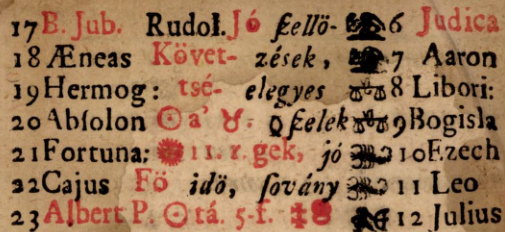 17 B. Jub. Rudol. Jó ſzellö- 6 Judica
18 Æneas Követ- zések, 7 Aaron
19 Hermog: tsé- elegyes ♎ 8 Libori:
20 Abſolon ☉ a' ♉. ſzelek ♎ 9 Bogisla
21 Fortuna: 11. r. gek, jó 10 Ezech
22 Cajus Fö idö, ſovány 11 Leo
23 Albert P. ☉ tá. 5-f. 12 Julius